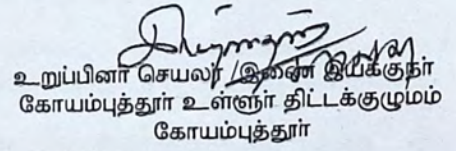 உறுப்பினர் செயலர் /இணை இயக்குநர்
கோயம்புத்தூர் உள்ளூர் திட்டக்குழுமம்
கோயம்புத்தூர்